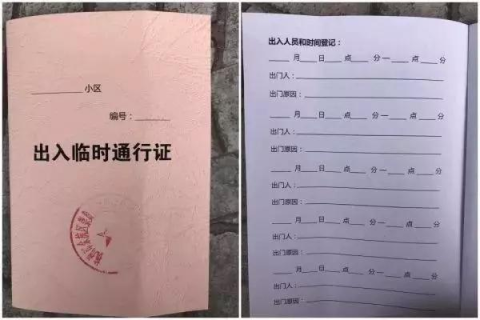 小区
编号：
出入临时通行证
出入人员和时间登记：
月 日 点 分一 点 分
出门人：
出门原因：
月 日 点 分一 点 分
出门人：
出门原因：
月 日 点 分一 点 分
出门人：
出门原因：
月 日 点 分一 点 分
出门人：
出门原因：
月 日 点 分一 点 分
出门人：
出门原因：